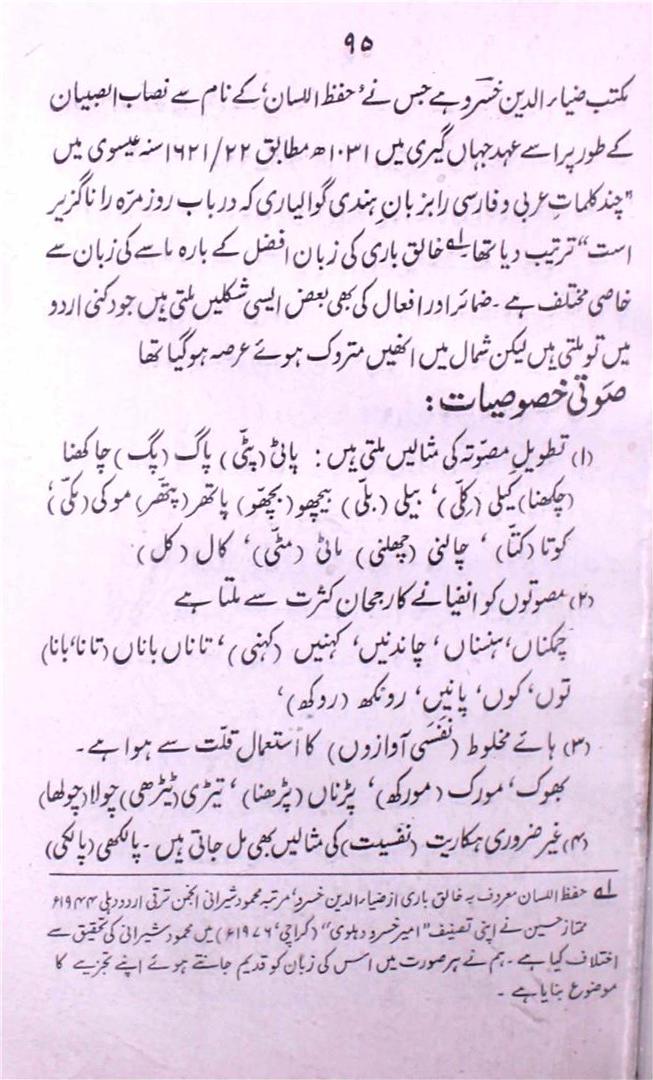 ۹۵
مکتب ضیاء الدین خسرو ہے جس نے ’حفظ اللسان‘ کے نام سے نصاب الصبیان
کے طور پر اسے عہد جہاں گیری میں ۱۰۳۱ھ مطابق ۲۲/۱۶۲۱ سنہ عیسوی میں
”چند کلماتِ عربی و فارسی را بزبانِ ہندی گوالیاری کہ درباب روزمرّہ را ناگزیر
است“ ترتیب دیا تھا۔ لہ خالق باری کی زبان افضل کے بارہ ماسے کی زبان سے
خاصی مختلف ہے۔ ضمائر اور افعال کی بھی بعض ایسی شکلیں ملتی ہیں جو دکنی اردو
میں تو ملتی ہیں لیکن شمال میں انھیں متروک ہوئے عرصہ ہو گیا تھا
صَوتی خصوصیات :
(۱) تطویلِ مصوّتہ کی مثالیں ملتی ہیں : پاٹی (پٹّی) پاگ (پگ) چاکھنا
(چکھنا) کیلی (کِلّی)، بیلی (بلّی) بیچھو (بچھّو) پاتھر (پتّھر) موکی (مکّی)،
کوتا (کتّا)، چالنی (چھلنی) ماٹی (مٹّی)، کال (کل)
(۲) مصوتوں کو انفیانے کا رجحان کثرت سے ملتا ہے
چمکناں، ہنسناں، چاندنیں، کہنیں (کہنی)، تاناں باناں (تانا، بانا)
توں، کوں، پانیں، رونکھ (روکھ)،
(۳) ہائے مخلوط (نَفَسی آوازوں) کا استعمال قلّت سے ہوا ہے۔
بھوک، مورک (مورکھ)، پڑناں (پڑھنا)، تیڑی (ٹیڑھی) چولا (چولھا)
(۴) غیر ضروری ہکاریت (نفسیت) کی مثالیں بھی مل جاتی ہیں۔ پالکھی (پالکی)
لہ حفظ اللسان معروف بہ خالق باری از ضیاء الدین خسرو، مرتبہ محمود شیرانی انجمن ترقی اردو دہلی ۱۹۴۴ء
ممتاز حسین نے اپنی تصنیف ”امیر خسرو دہلوی“ (کراچی، ۱۹۷۶ء) میں محمود شیرانی کی تحقیق سے
اختلاف کیا ہے۔ ہم نے ہر صورت میں اس کی زبان کو قدیم جانتے ہوئے اپنے تجزیے کا
موضوع بنایا ہے۔